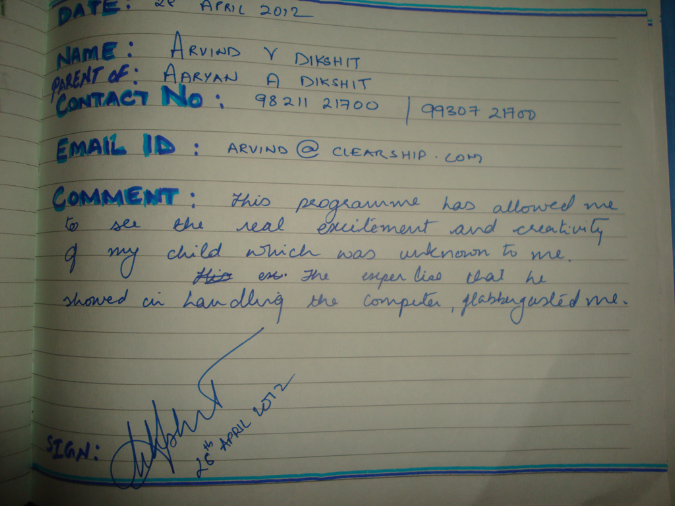 DATE: 28 APRIL 2012
NAME: ARVIND V DIKSHIT
PARENT OF: AARYAN A DIKSHIT
CONTACT NO: 98211 21700 / 99307 21700
EMAIL ID: ARVIND@CLEARSHIP.COM
COMMENT: This programme has allowed me
to see the real excitement and creativity
of my child which was unknown to me.
This ex. The expertise that he
showed in handling the computer, flabbergasted me.
SIGN: Dikshit
28th APRIL 2012